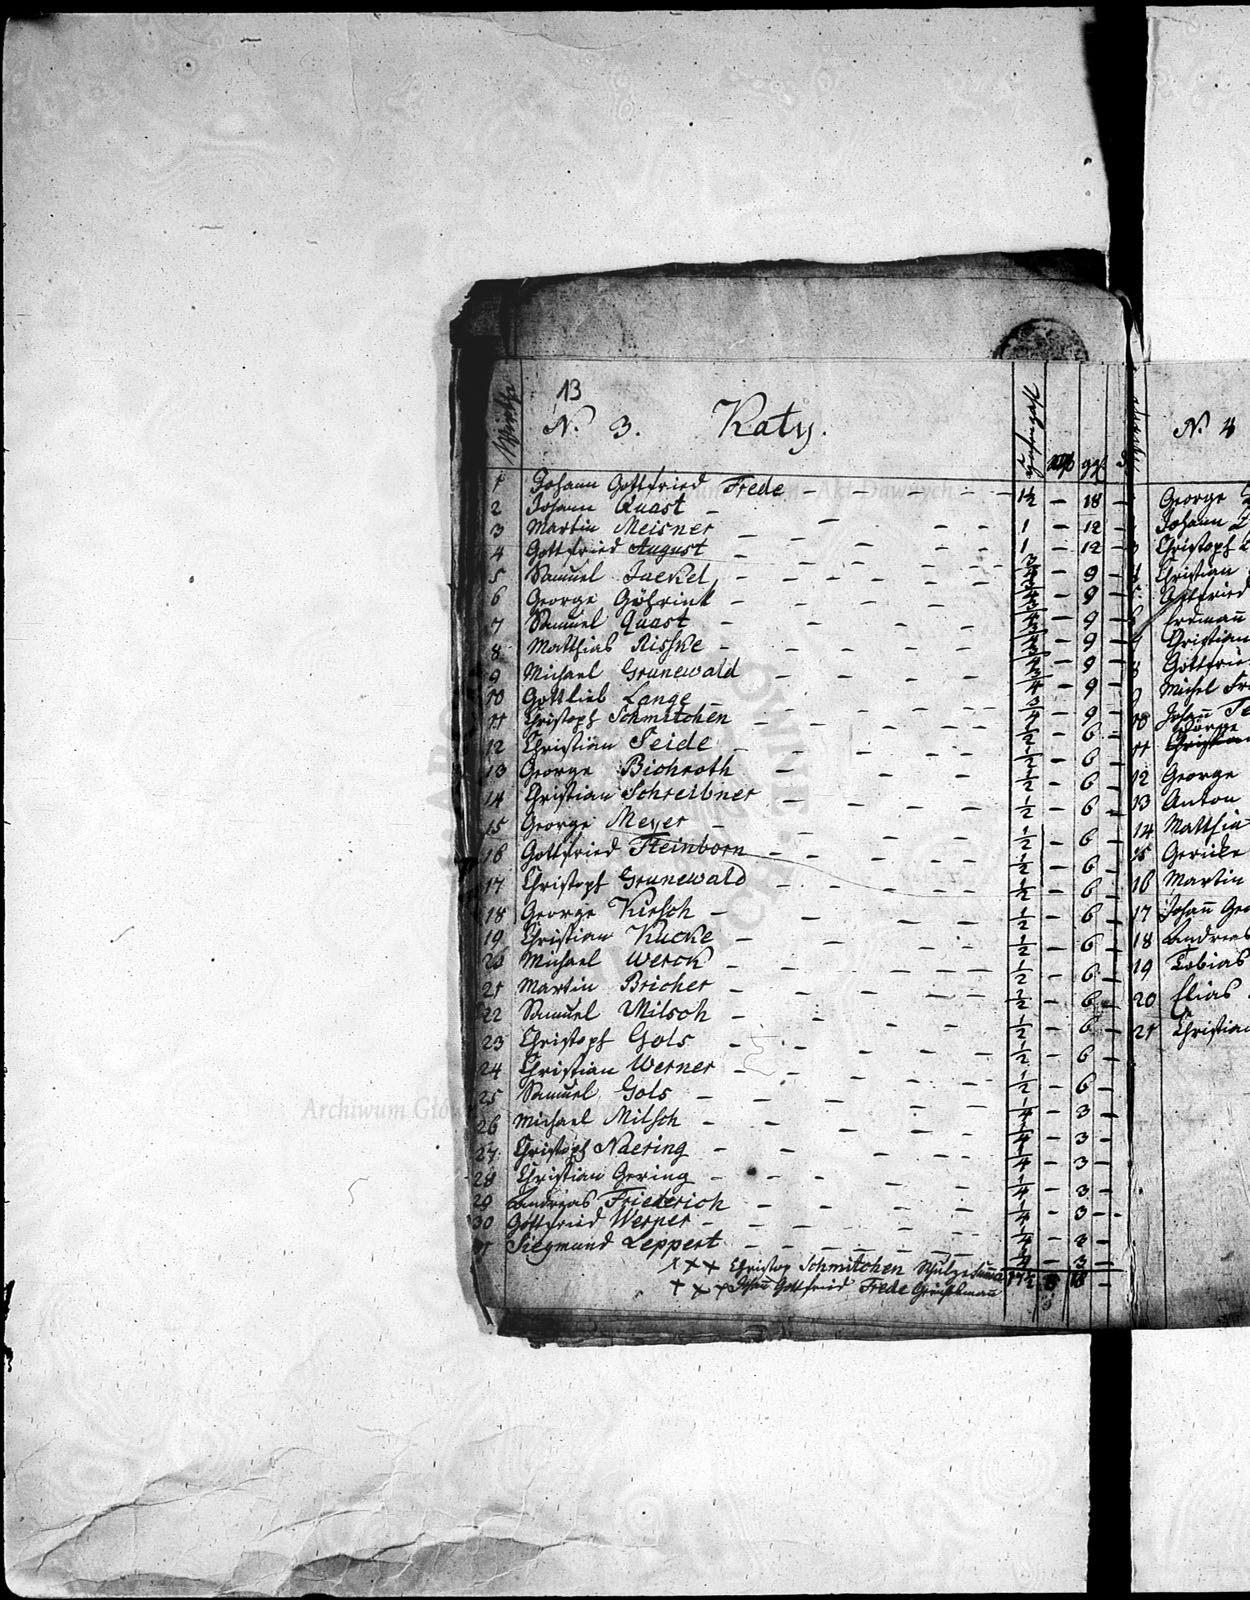 13
Wirthe N. 3. Katy.
1 Johann Gottfried Frede 1½ - 18 -
2 Johann Quast 1 - 12 -
3 Martin Meisner 1 - 12 -
4 Gottfried August ¾ - 9 -
5 Samuel Jackel ¾ - 9 -
6 George Göhrink ¾ - 9 -
7 Samuel Quast ¾ - 9 -
8 Matthias Rishke ¾ - 9 -
9 Michael Grunewald ¾ - 9 -
10 Gottlieb Lange ¾ - 9 -
11 Christoph Schmitchen ½ - 6 -
12 Christian Seide ½ - 6 -
13 George Bichroth ½ - 6 -
14 Christian Schreibner ½ - 6 -
15 George Meyer ½ - 6 -
16 Gottfried Steinborn ½ - 6 -
17 Christoph Grunewald ½ - 6 -
18 George Kirsch ½ - 6 -
19 Christian Kucke ½ - 6 -
20 Michael Werck ½ - 6 -
21 Martin Bricher ½ - 6 -
22 Samuel Mitsch ½ - 6 -
23 Christoph Gols ½ - 6 -
24 Christian Werner ½ - 6 -
25 Samuel Gols ¼ - 3 -
26 Michael Mitsch ¼ - 3 -
27 Christoph Naering ¼ - 3 -
28 Christian Gering ¼ - 3 -
29 Andreas Friederich ¼ - 3 -
30 Gottfried Werner ¼ - 3 -
31 Siegmund Leppert ¼ - 3 -
xxx Christop Schmitchen Schulze Suma 17½ 8 18
xxx Johann Gottfried Frede Gerichtsmann
N. 4
George
Johann
Christoph
4 Christian
5 Gottfried
Erdmann
7 Christian
8 Gottfried
9 Michel
10 Johann
George
11 Christian
12 George
13 Anton
14 Matthia
15 Gericke
16 Martin
17 Johann Geo
18 Andreas
19 Tobias
20 Elias
21 Christian
Archiwum Główne Akt Dawnych